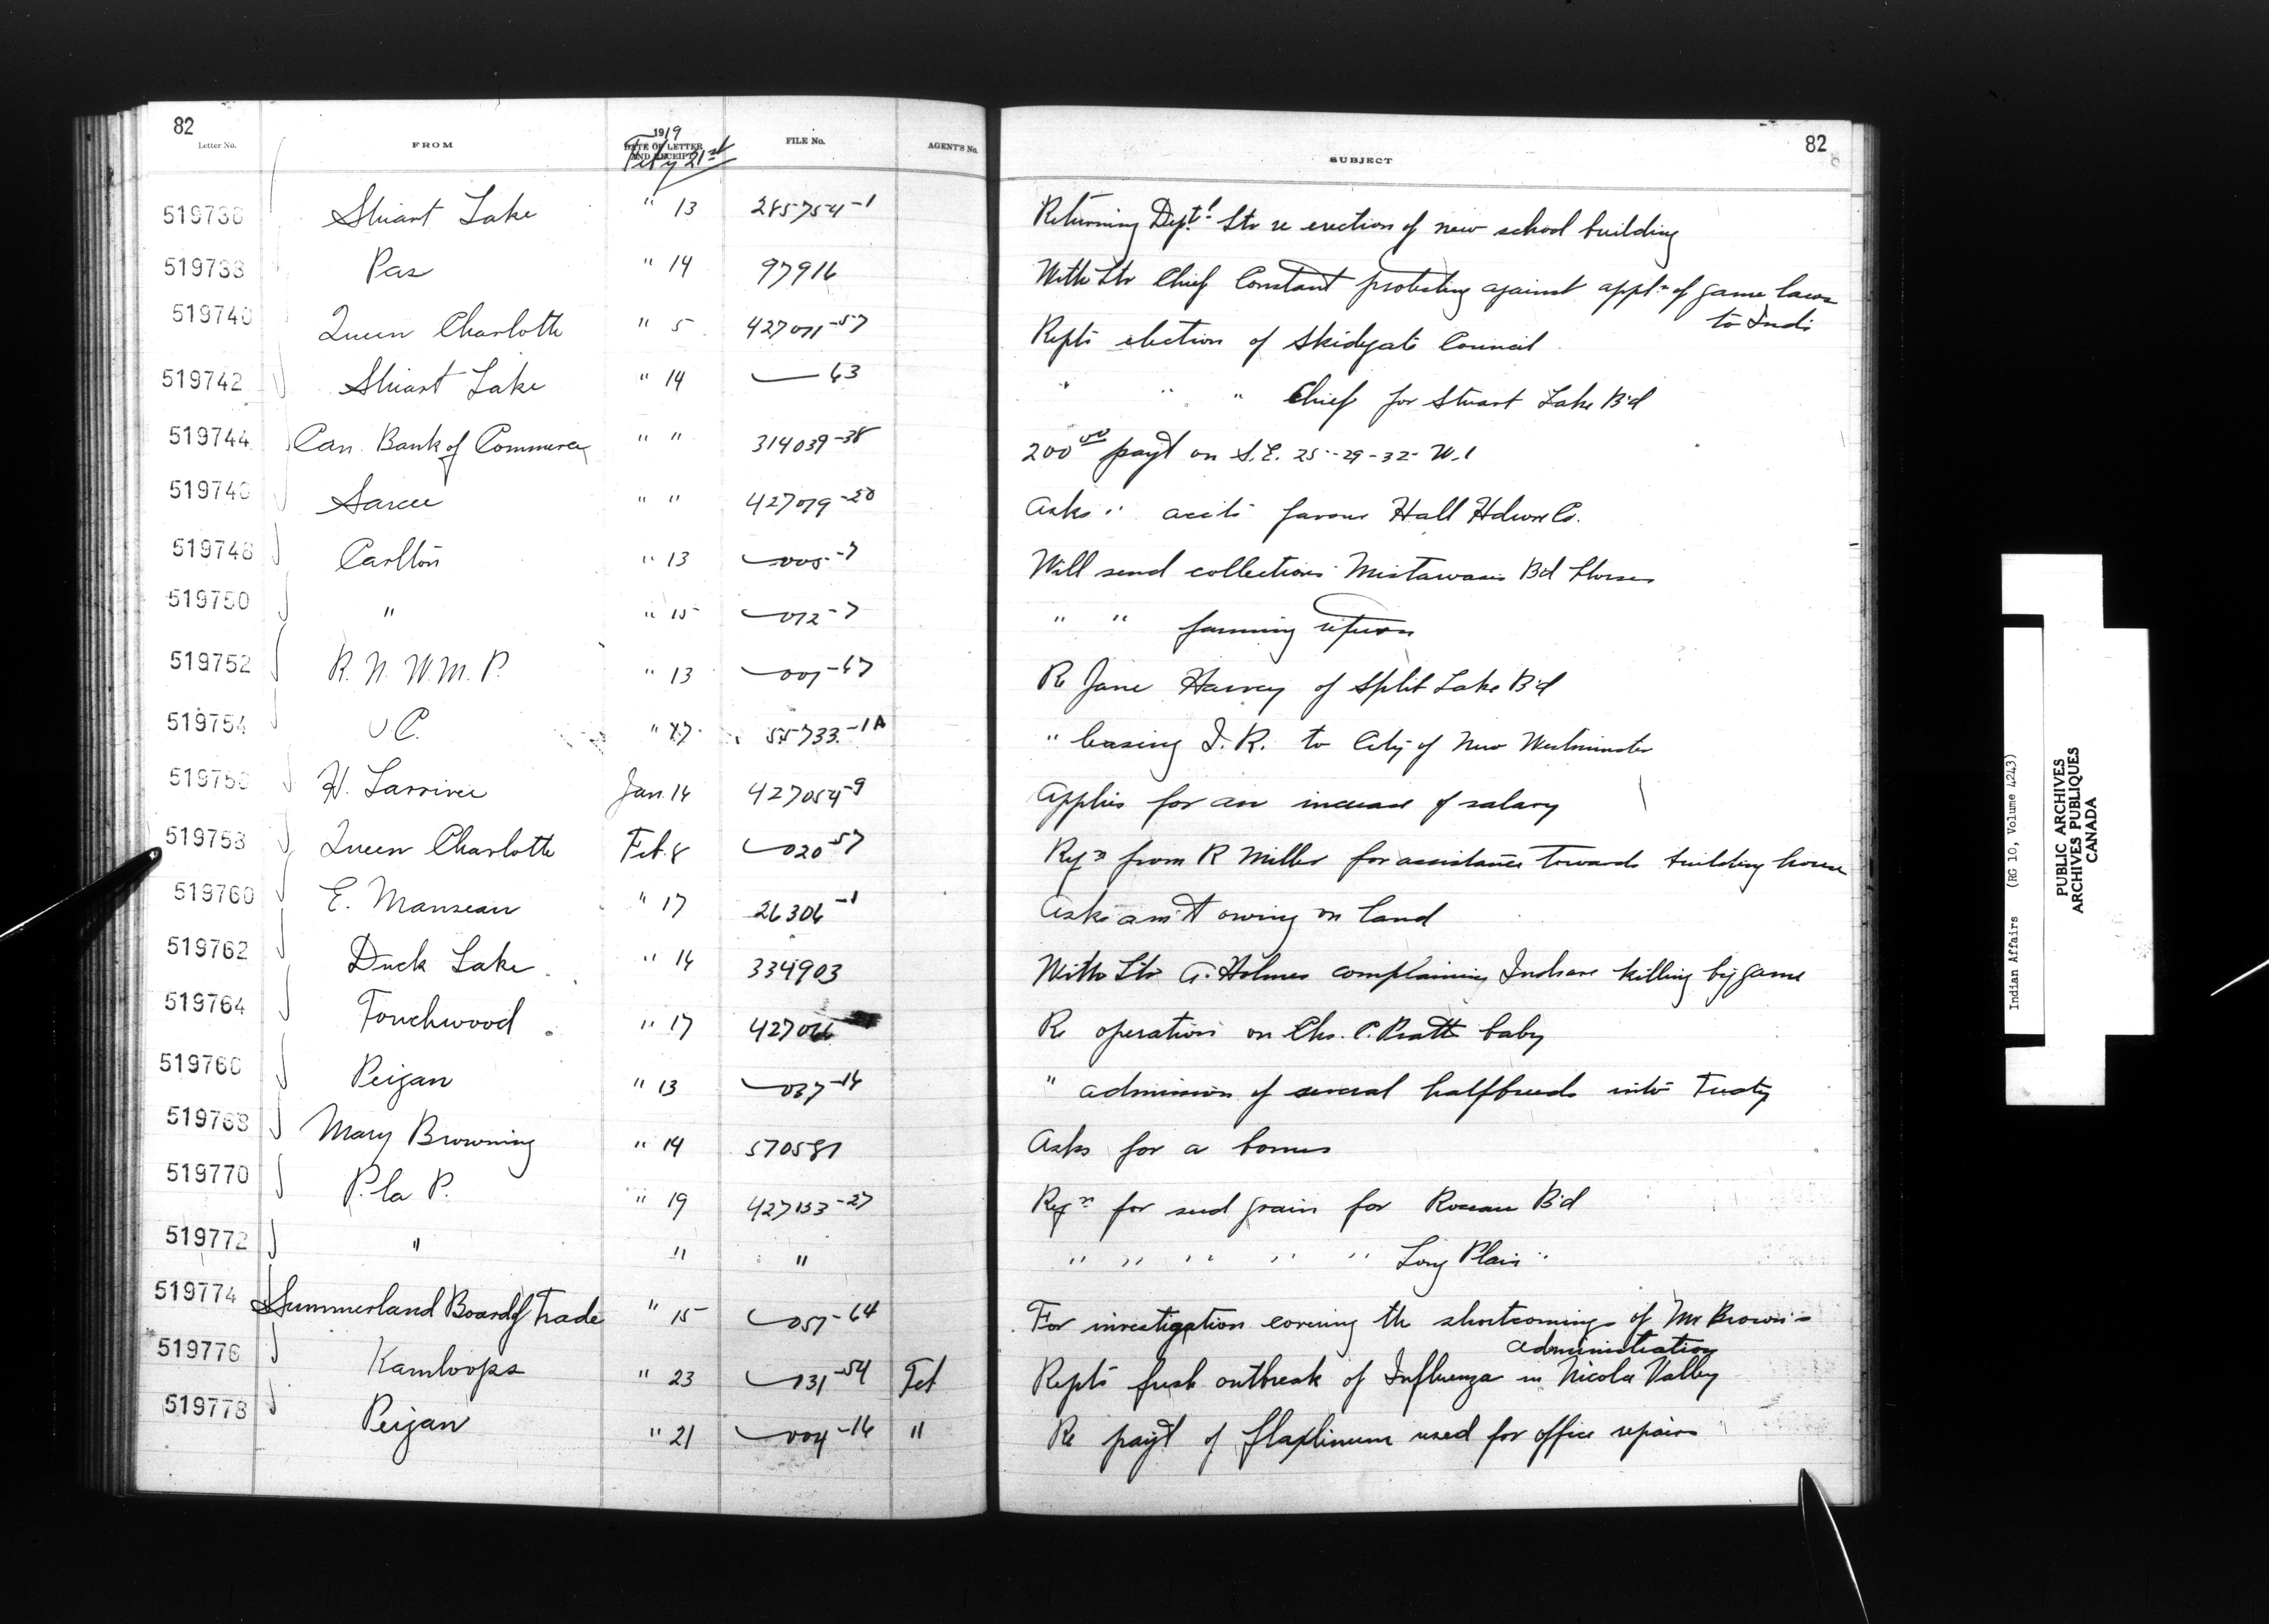 82
Letter No. FROM 1919 DATE OF LETTER AND RECEIPT Feby 21st FILE No. AGENT'S No. SUBJECT 82
519736 Stuart Lake " 13 285754-1 Returning Dept'l ltr re erection of new school building
519738 Pas " 14 97916 With ltr Chief Constant protesting against appl.n of game laws
to Inds
519740 Queen Charlotte " 5 427071-57 Repts election of Skidegate Council
519742 Stuart Lake " 14 —63 " " " Chief for Stuart Lake B'd
519744 Can. Bank of Commerce " " 314039-38 200 00 payt on S.E. 25-29-32-W.1
519746 Sarcee " " 427019-20 Asks " accts favour Hall Hdwre Co.
519748 Carlton " 13 —005-7 Will send collections Mistawasis Bd Horses
519750 " " 15 —012-7 " " farming return
519752 R.N.W.M.P. " 13 —001-67 Re Jane Harvey of Split Lake B'd
519754 " 17 55733-1A " leasing I.R. to City of New Westminster
519756 H. Larrivee Jan. 14 427054-9 Applies for an increase of salary
519758 Queen Charlotte Feb. 8 —020-57 Reqn from R Miller for assistance towards building house
519760 E. Manseau " 17 26306-1 Asks am't owing on land
519762 Duck Lake " 14 334903 With ltr A. Holmes complaining Indians killing big game
519764 Touchwood " 17 427066 Re operation on Chs. C. Pratt baby
519766 Peigan " 13 —037-16 " admission of several halfbreeds into Treaty
519768 Mary Browning " 14 570581 Asks for a bonus
519770 P. la P. " 19 427133-27 Reqn for seed grain for Roseau B'd
519772 " " " " " " " " Long Plain "
519774 Summerland Board of Trade " 15 —051-64 For investigation covering the shortcomings of Mr Brown's
administration
519776 Kamloops " 23 —131-54 Feb Repts fresh outbreak of Influenza in Nicola Valley
519778 Peigan " 21 —004-16 " Re payt of flaxlinum used for office repairs
Indian Affairs (RG 10, Volume 4243)
PUBLIC ARCHIVES
ARCHIVES PUBLIQUES
CANADA